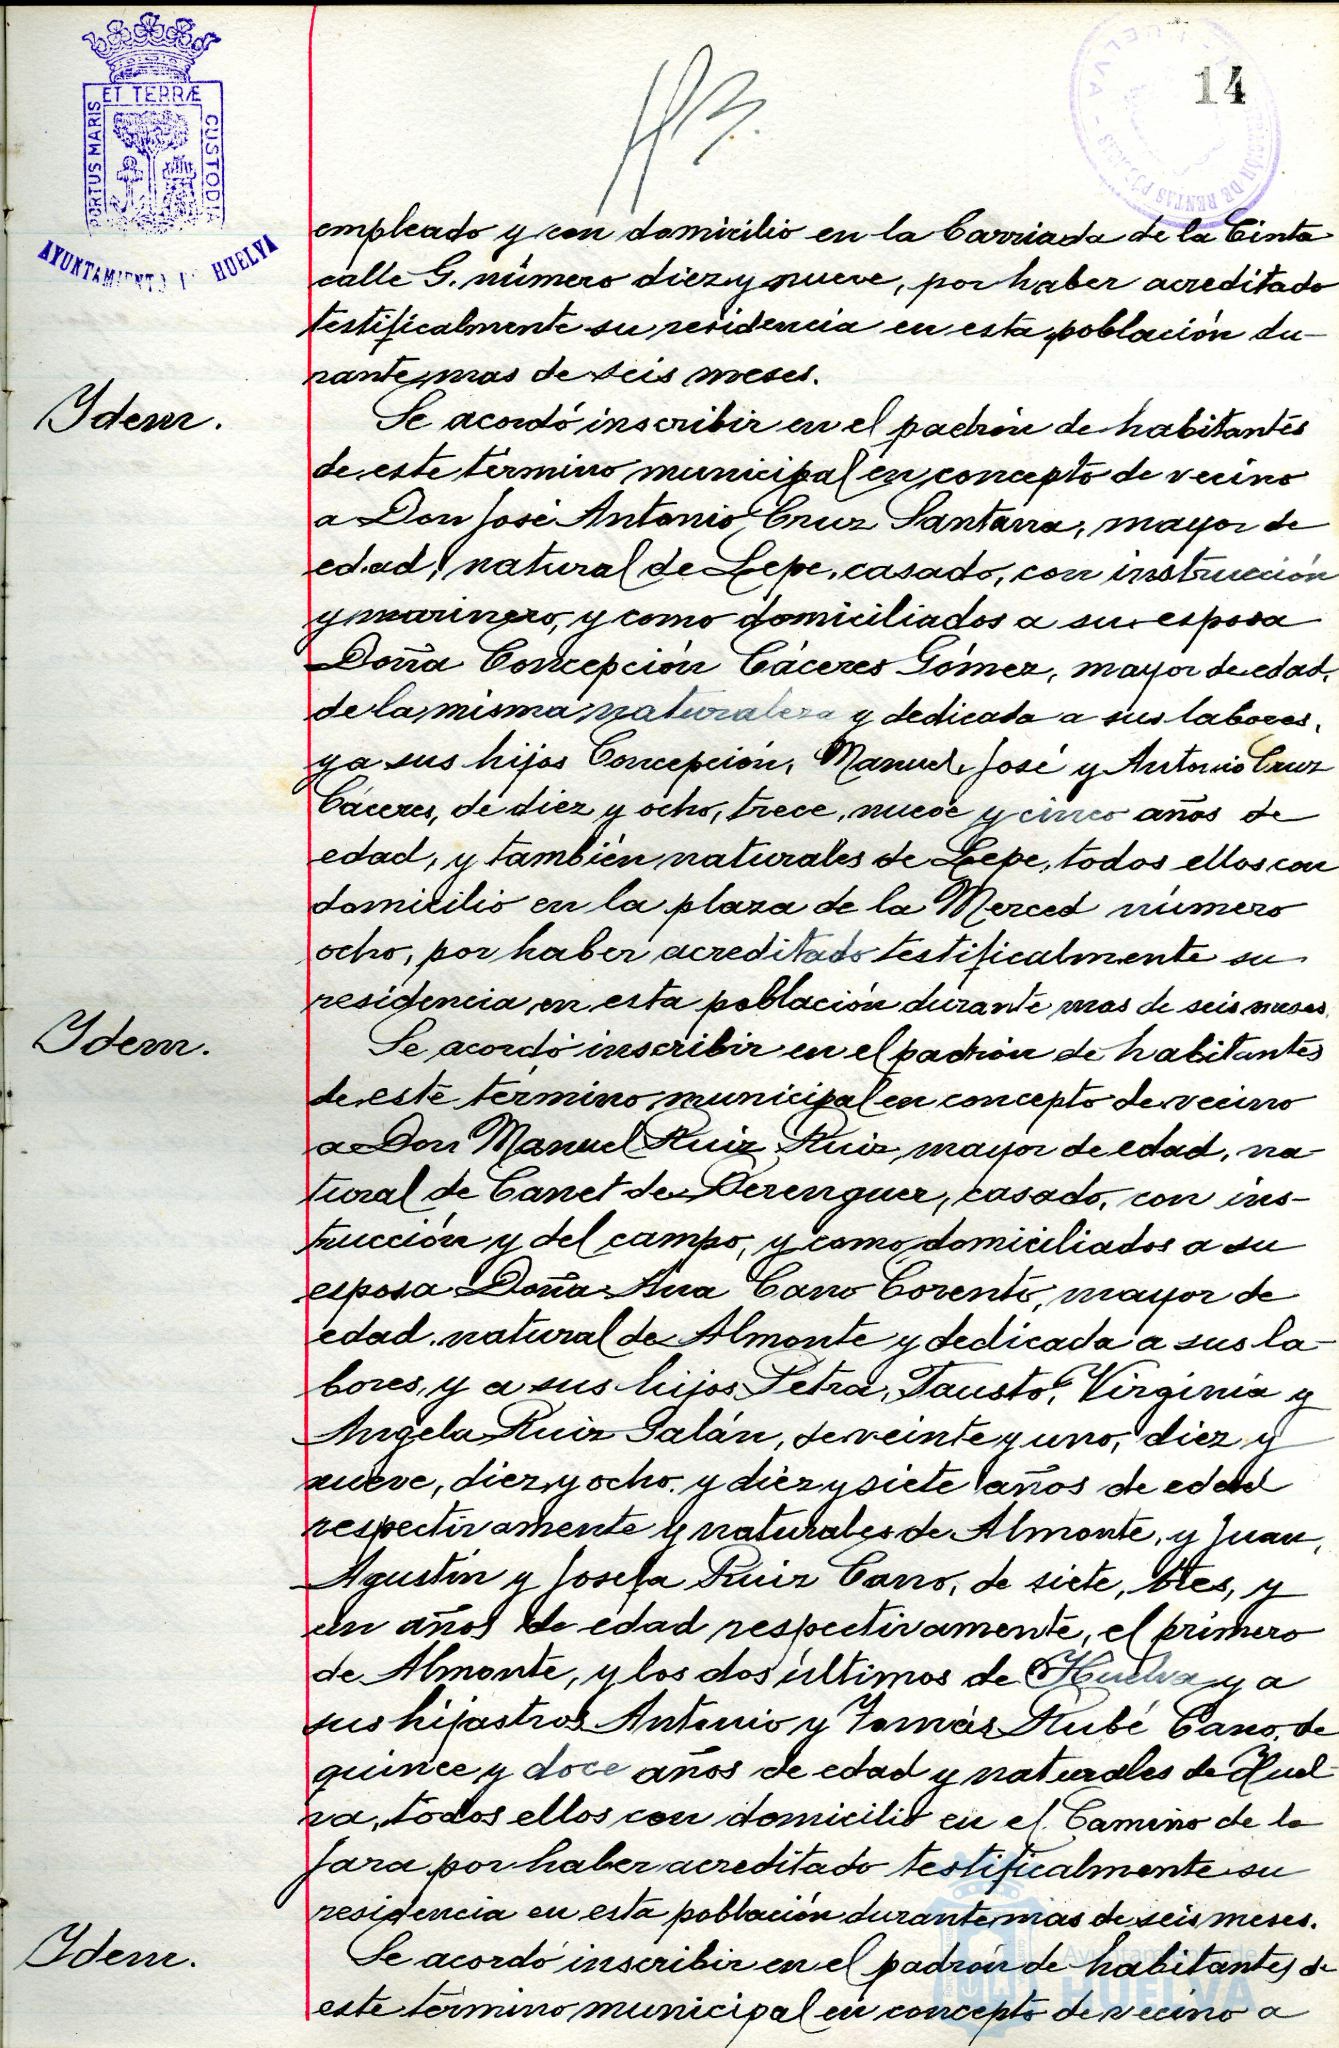 14
ET TERRÆ
PORTUS MARIS
CUSTODIA
AYUNTAMIENTO HUELVA
empleado y con domicilio en la barriada de la Cinta
calle G. número diez y nueve, por haber acreditado
testificalmente su residencia en esta población du-
rante mas de seis meses.
Ydem.
Se acordó inscribir en el padrón de habitantes
de este término municipal en concepto de vecino
a Don José Antonio Cruz Santana, mayor de
edad, natural de Lepe, casado, con instrucción
y marinero, y como domiciliados a su esposa
Doña Concepción Cáceres Gómez, mayor de edad,
de la misma naturaleza y dedicada a sus labores,
y a sus hijos Concepción, Manuel, José y Antonio Cruz
Cáceres, de diez y ocho, trece, nueve y cinco años de
edad, y también naturales de Lepe, todos ellos con
domicilio en la plaza de la Merced número
ocho, por haber acreditado testificalmente su
residencia en esta población durante mas de seis meses.
Ydem.
Se acordó inscribir en el padrón de habitantes
de este término municipal en concepto de vecino
a Don Manuel Ruiz Ruiz, mayor de edad, na-
tural de Canet de Berenguer, casado, con ins-
trucción y del campo, y como domiciliados a su
esposa Doña Ana Cano mayor de
edad, natural de Almonte y dedicada a sus la-
bores, y a sus hijos Petra, Fausto, Virginia y
Angela Ruiz Galán, de veinte y uno, diez y
nueve, diez y ocho y diez y siete años de edad
respectivamente y naturales de Almonte, y Juan,
Agustín y Josefa Ruiz Cano, de siete, tres, y
un años de edad respectivamente, el primero
de Almonte, y los dos últimos de Huelva y a
sus hijastros Antonio y Tomás Rubé Cano, de
quince y doce años de edad y naturales de Huel-
va, todos ellos con domicilio en el Camino de la
Jara por haber acreditado testificalmente su
residencia en esta población durante mas de seis meses.
Ydem.
Se acordó inscribir en el padrón de habitantes de
este término municipal en concepto de vecino a
Ayuntamiento de
HUELVA